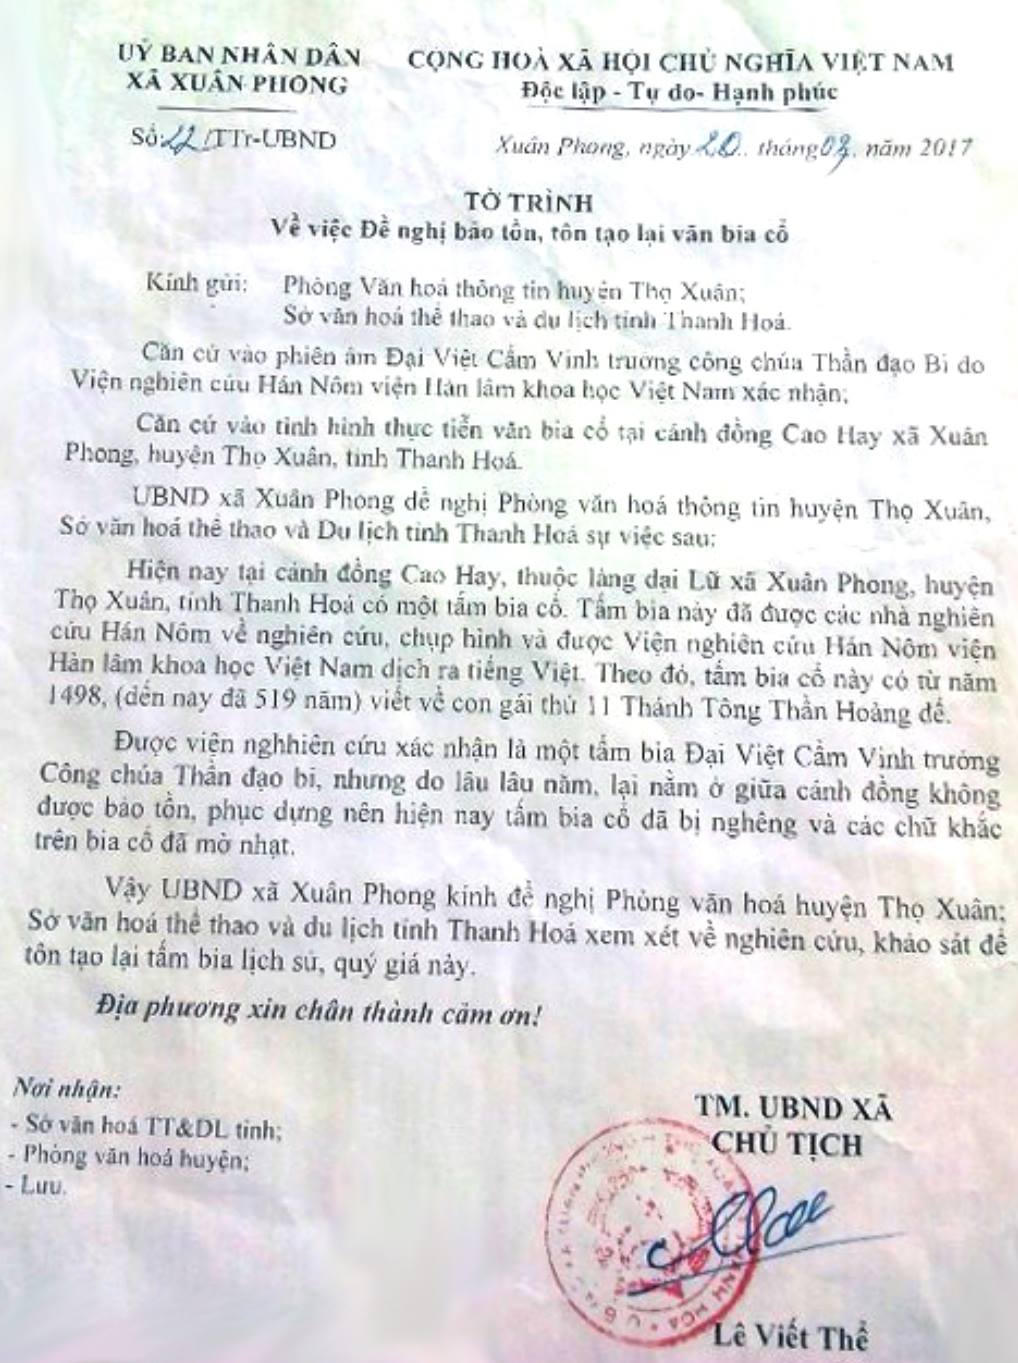 UỶ BAN NHÂN DÂN
XÃ XUÂN PHONG
CỘNG HOÀ XÃ HỘI CHỦ NGHĨA VIỆT NAM
Độc lập - Tự do- Hạnh phúc
Số: 22/TTr-UBND
Xuân Phong, ngày 20.. tháng 03. năm 2017
TỜ TRÌNH
Về việc Đề nghị bảo tồn, tôn tạo lại văn bia cổ
Kính gửi: Phòng Văn hoá thông tin huyện Thọ Xuân;
Sở văn hoá thể thao và du lịch tỉnh Thanh Hoá.
Căn cứ vào phiên âm Đại Việt Cẩm Vinh trưởng công chúa Thần đạo Bi do
Viện nghiên cứu Hán Nôm viện Hàn lâm khoa học Việt Nam xác nhận;
Căn cứ vào tình hình thực tiễn văn bia cổ tại cánh đồng Cao Hay xã Xuân
Phong, huyện Thọ Xuân, tỉnh Thanh Hoá.
UBND xã Xuân Phong đề nghị Phòng văn hoá thông tin huyện Thọ Xuân,
Sở văn hoá thể thao và Du lịch tỉnh Thanh Hoá sự việc sau:
Hiện nay tại cánh đồng Cao Hay, thuộc làng đại Lữ xã Xuân Phong, huyện
Thọ Xuân, tỉnh Thanh Hoá có một tấm bia cổ. Tấm bia này đã được các nhà nghiên
cứu Hán Nôm về nghiên cứu, chụp hình và được Viện nghiên cứu Hán Nôm viện
Hàn lâm khoa học Việt Nam dịch ra tiếng Việt. Theo đó, tấm bia cổ này có từ năm
1498, (đến nay đã 519 năm) viết về con gái thứ 11 Thánh Tông Thần Hoàng đế.
Được viện nghhiên cứu xác nhận là một tấm bia Đại Việt Cẩm Vinh trưởng
Công chúa Thần đạo bi, nhưng do lâu lâu năm, lại nằm ở giữa cánh đồng không
được bảo tồn, phục dựng nên hiện nay tấm bia cổ đã bị nghêng và các chữ khắc
trên bia cổ đã mờ nhạt.
Vậy UBND xã Xuân Phong kính đề nghị Phòng văn hoá huyện Thọ Xuân;
Sở văn hoá thể thao và du lịch tỉnh Thanh Hoá xem xét về nghiên cứu, khảo sát để
tôn tạo lại tấm bia lịch sử, quý giá này.
Địa phương xin chân thành cảm ơn!
Nơi nhận:
- Sở văn hoá TT&DL tỉnh;
- Phòng văn hoá huyện;
- Lưu.
TM. UBND XÃ
CHỦ TỊCH
Lê Viết Thể